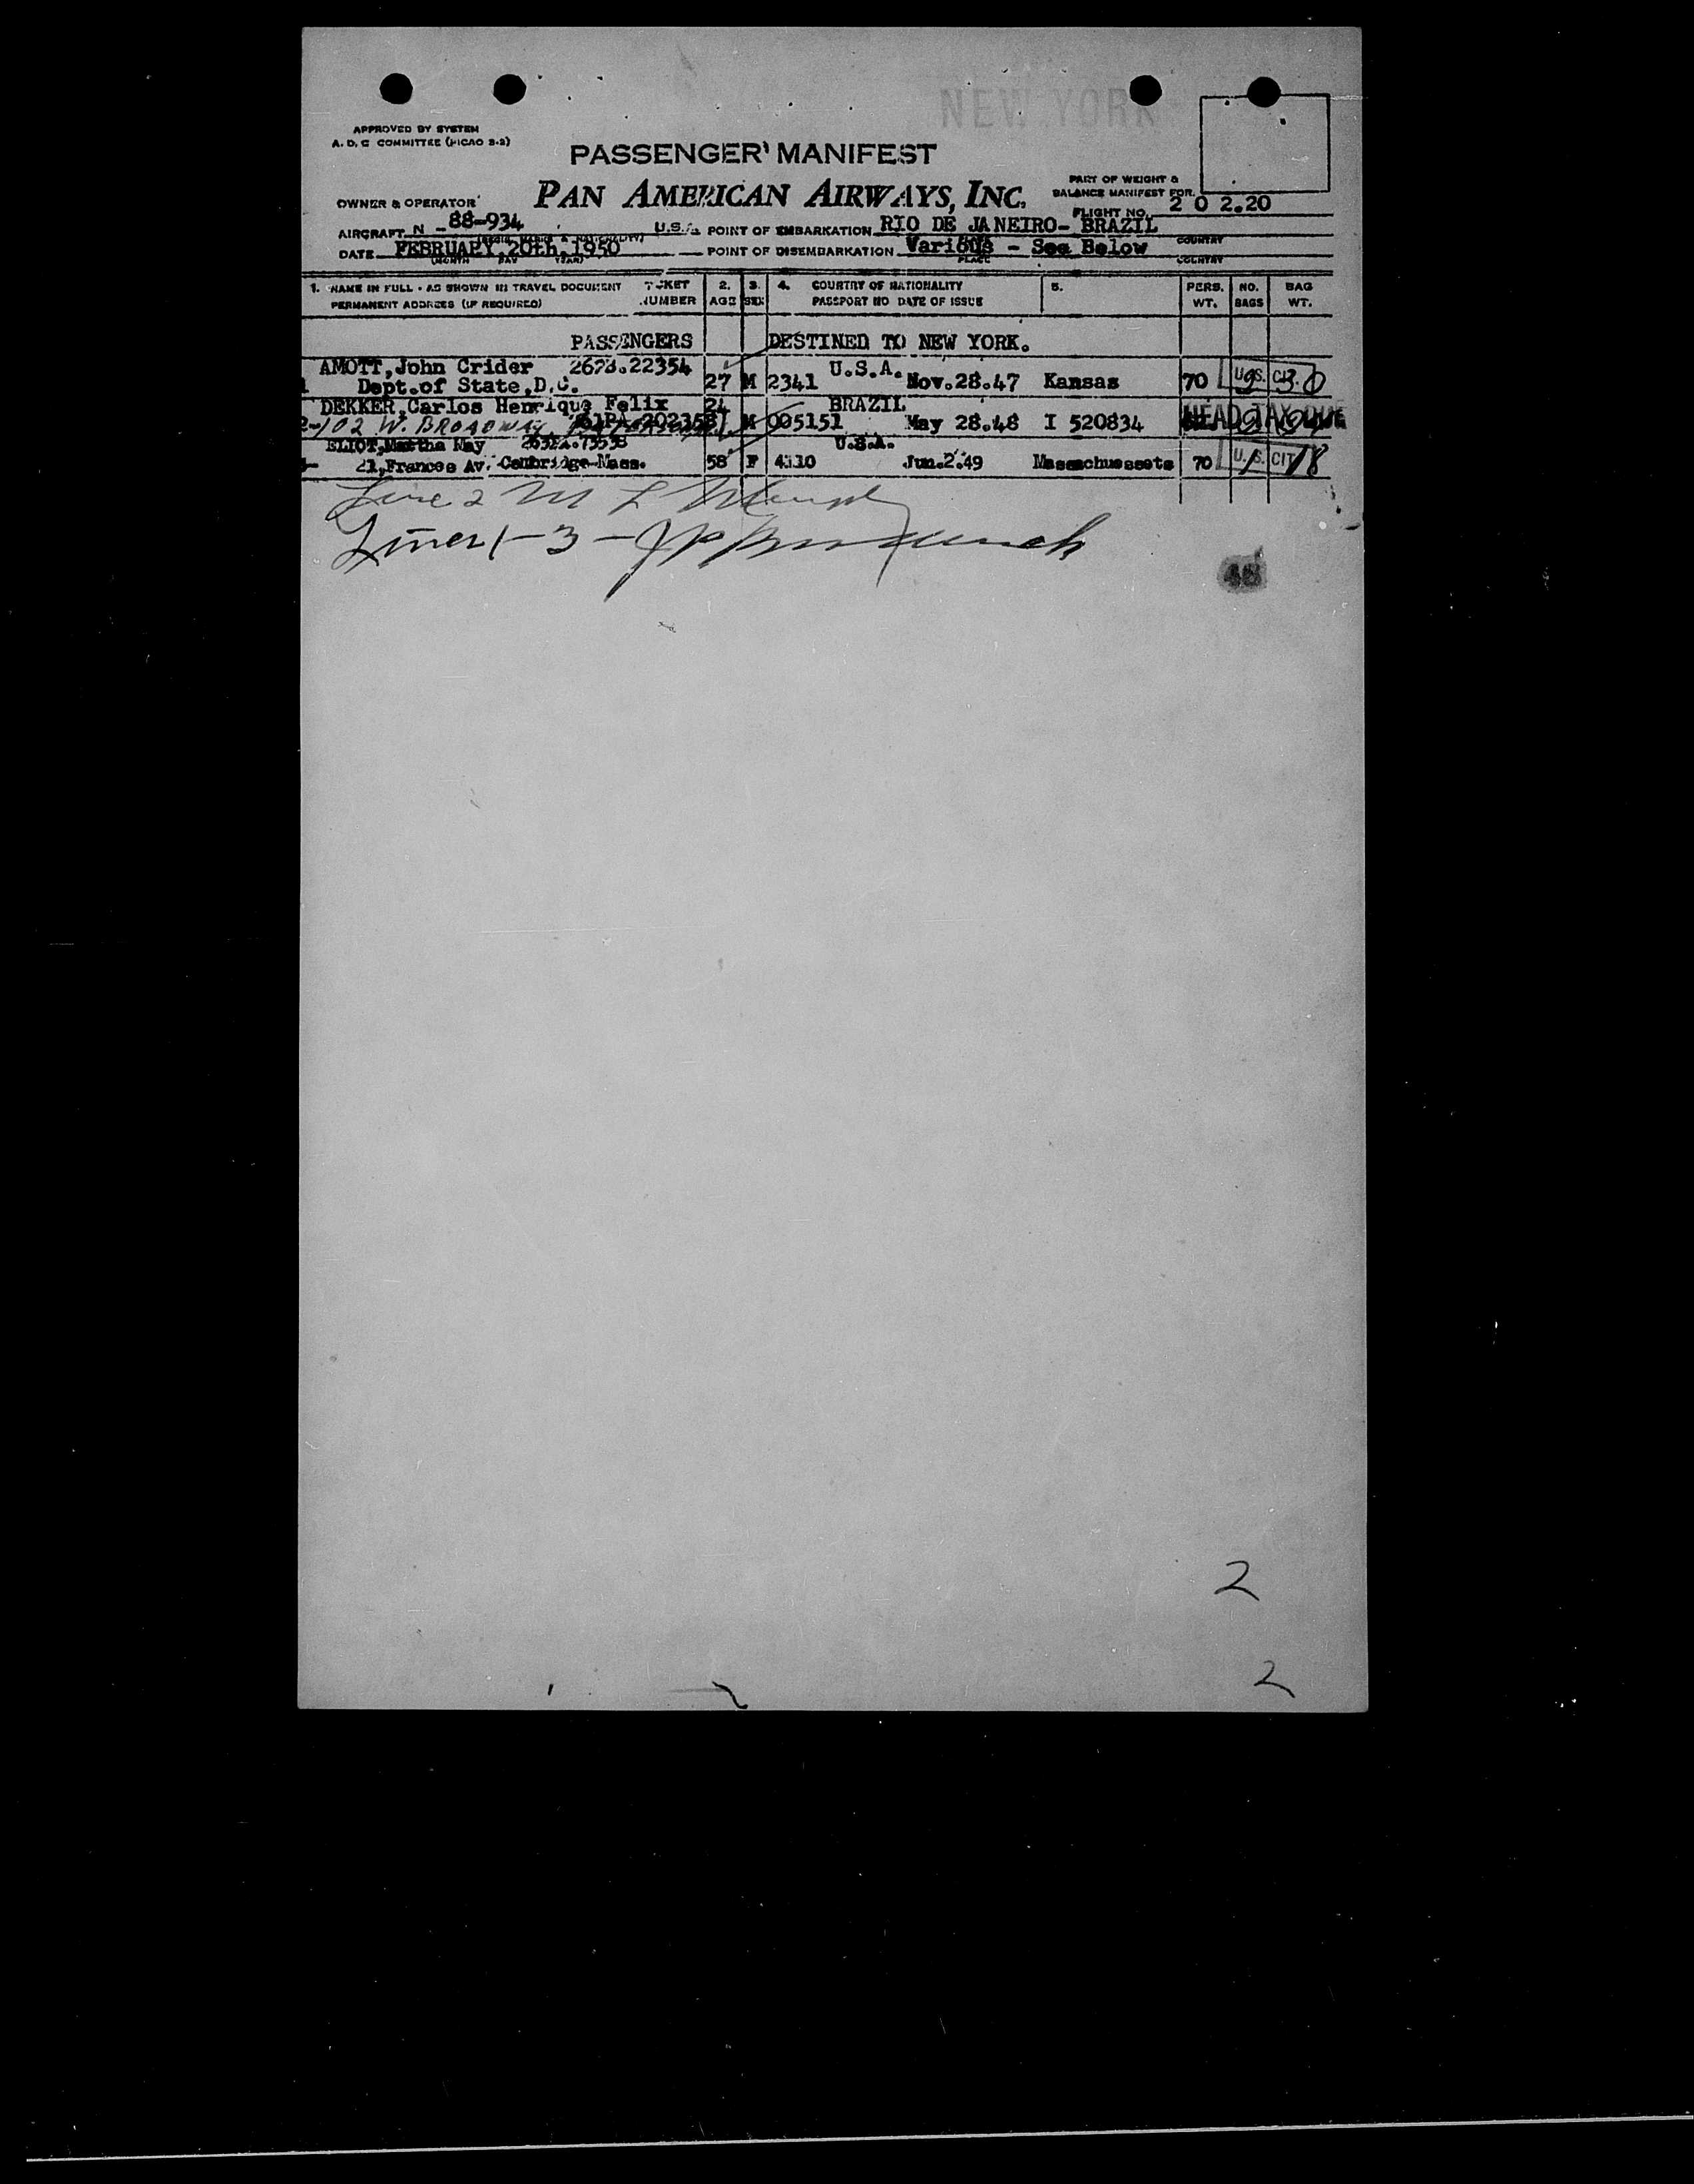 NEW YORK
APPROVED BY SYSTEM
A. D. C COMMITTEE (PICAO 2-2)
PASSENGER MANIFEST
PART OF WEIGHT &
BALANCE MANIFEST FOR
OWNER & OPERATOR PAN AMERICAN AIRWAYS, INC.
FLIGHT NO. 2 0 2.20
AIRCRAFT N -88-934 U.S.A POINT OF EMBARKATION RIO DE JANEIRO- BRAZIL
DATE FEBRUARY, 20th, 1950 POINT OF DISEMBARKATION Various - See Below
(MONTH DAY YEAR) PLACE COUNTRY
1. NAME IN FULL - AS SHOWN IN TRAVEL DOCUMENT TICKET 2. 3. 4. COUNTRY OF NATIONALITY 5. PERS. NO. BAG
PERMANENT ADDRESS (IF REQUIRED) NUMBER AGE SEX PASSPORT NO DATE OF ISSUE WT. BAGS WT.
PASSENGERS DESTINED TO NEW YORK.
AMOTT, John Crider 2678.22354 U.S.A.
1 Dept.of State, D.C. 27 M 2341 Nov.28.47 Kansas 70 U.S. CIT.
DEKKER, Carlos Henrique Felix 24 BRAZIL
2-102 W. BROADWAY M 005151 May 28.48 I 520834 HEAD TAX DUE
ELIOT, Martha May U.S.A.
21, Frances Av. Cambridge-Mass. 58 F 4110 Jun.2.49 Massachussets 70 U.S. CIT 18
Line 2 M L
Lines 1-3 - JP
48
2
2